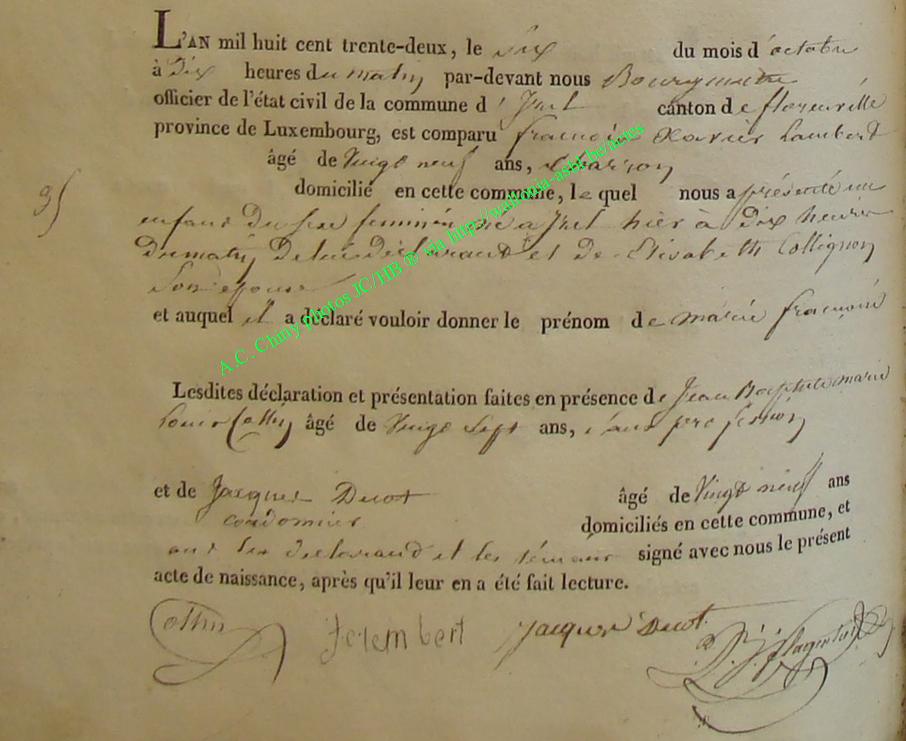 L'AN mil huit cent trente-deux, le Six du mois d'octobre
à Dix heures du matin par-devant nous Bourgmestre
officier de l'état civil de la commune d' canton de florenville
province de Luxembourg, est comparu francois Xavier Lambert
âgé de Vingt neuf ans, charron
domicilié en cette commune, le quel nous a présenté un
35
enfant du sexe feminin né a hier à Dix heures
Dumatin De lui déclarant et de Elisabeth Collignon
Son épouse
et auquel il a déclaré vouloir donner le prénom de marie francoise
Lesdites déclaration et présentation faites en présence de Jean Baptiste marie
Louis Collin âgé de Vingt Sept ans, sans profession
et de Jacques Ducot âgé de Vingt neuf ans
cordonnier domiciliés en cette commune, et
declarant et les témoins signé avec nous le présent
acte de naissance, après qu'il leur en a été fait lecture.
Collin Jacques Ducot
A.C. Chiny photos JC/HB ® via http://wallonia-asbl.be/actes